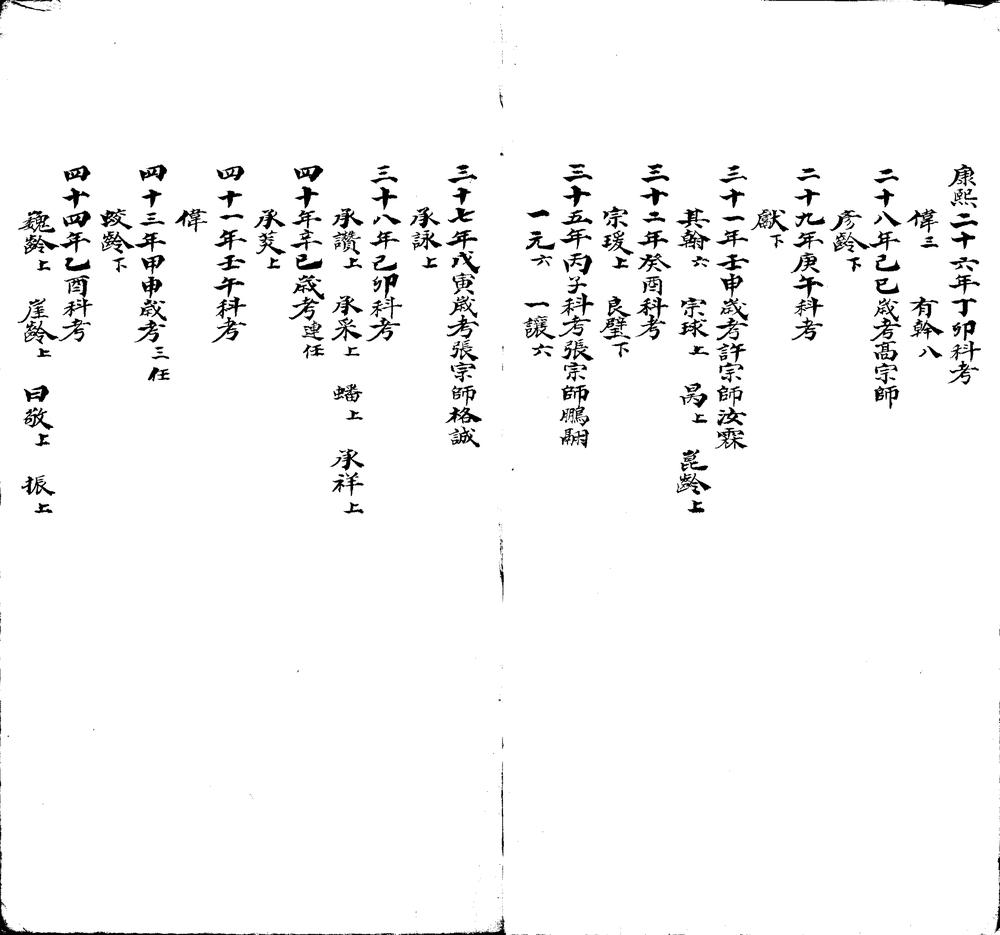 康熙二十六年丁卯科考
偉三　有幹八
二十八年己巳歲考高宗師
彥齡下
二十九年庚午科考
獻下
三十一年壬申歲考許宗師汝霖
其翰六　宗球上　昺上　崑齡上
三十二年癸酉科考
宗瑗上　良璧下
三十五年丙子科考張宗師鵬翮
一元六　一讓六
三十七年戊寅歲考張宗師榕誠
承詠上
三十八年己卯科考
承讚上　承采上　蟠上　承祥上
四十年辛巳歲考連任
承芠上
四十一年壬午科考
偉
四十三年甲申歲考三任
蛟齡下
四十四年乙酉科考
巍齡上　崖齡上　曰敬上　振上